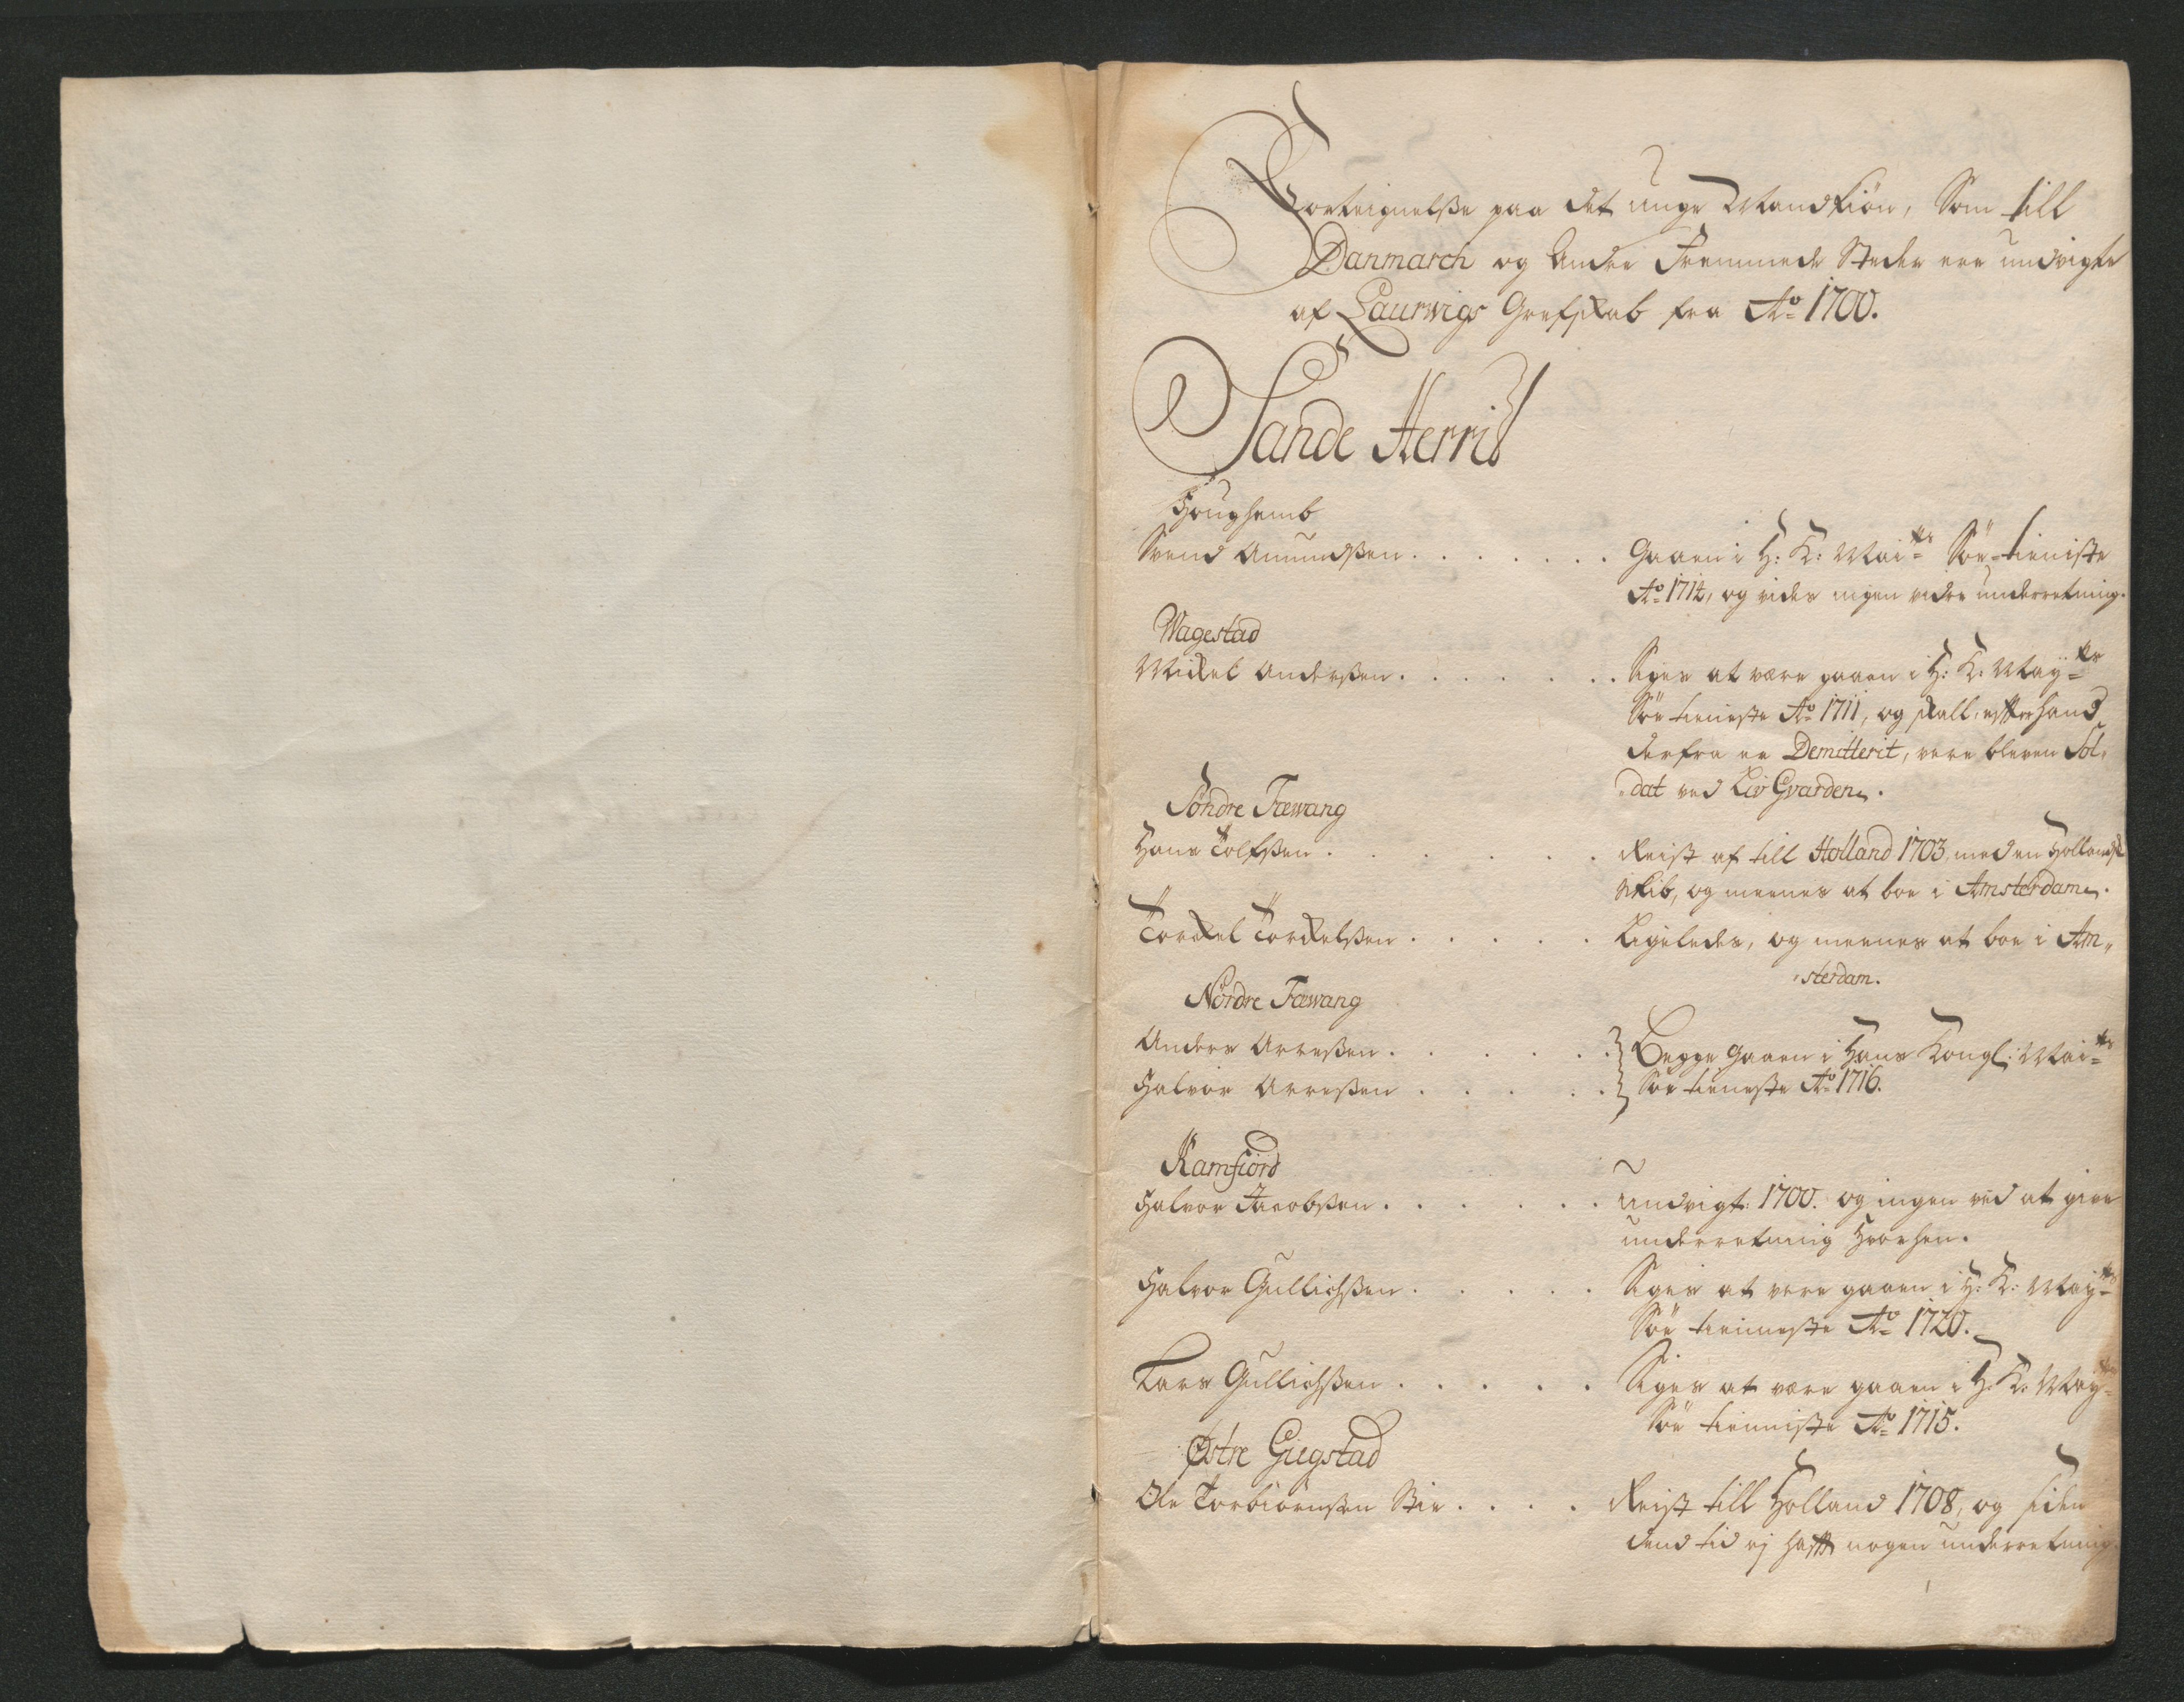 Forteignelsse paa det unge Mandkiön, Som till
Danmarch og Andre Fremmede Steder ere undvigte
af Laurwigs Grefskab fra Ao 1700.
Sande Herrit
Houghemb
Svend Amundssen . . . . . . . Gaaen i H: K: Maitts Söe-tieniste
Ao 1714, og vides ingen vidre underretning.
Wagestad
Mickel Anderssen . . . . . . . Siges at være gaaen i H: K: Maytts
Söe tieneste Ao 1711, og skall, effter hand
derfra er Demitterit, være bleven Sol„
„dat ved Liv Gvarden.
Söndre Fæwang
Hans Tolfssen . . . . . . . Reist af till Holland 1703, med en Hollandsk
Skib, og meenes at boe i Amsterdam.
Torkel Torkelssen . . . . . Ligeledes, og meenes at boe i Am„
„sterdam.
Nordre Fæwang
Anders Arressen . . . . . . . } Begge Gaaen i Hans Kongl: Maitts
Halvor Arressen . . . . . . } Söe tieneste Ao 1716.
Ramfiord
Halvor Jacobssen . . . . . . undvigt: 1700. og ingen ved at give
underretning hvorhen.
Halvor Gullichssen . . . . . Siges at være gaaen i H: K: Maytts
Söe tienneste Ao 1720.
Lars Gullichssen . . . . . Siges at være gaaen i H: K: Maytts
Söe tienniste Ao 1715.
Østre Giegstad
Ole Torbiörnssen Stie . . . . Reist till Holland 1708, og siden
dend tid ej hafft nogen underretning.